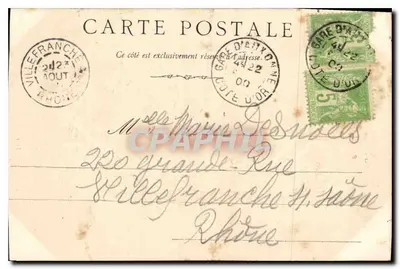 CARTE POSTALE
Ce côté est exclusivement réservé à l'adresse.
VILLEFRANCHE
2
AOUT
RHONE
GARE D'AUXONNE
22
00
COTE D'OR
GARE D'AUXONNE
22
00
COTE D'OR
5
Melle Marie Desnoëls
220 grande-Rue
Villefranche s. Saône
Rhône
CPArama